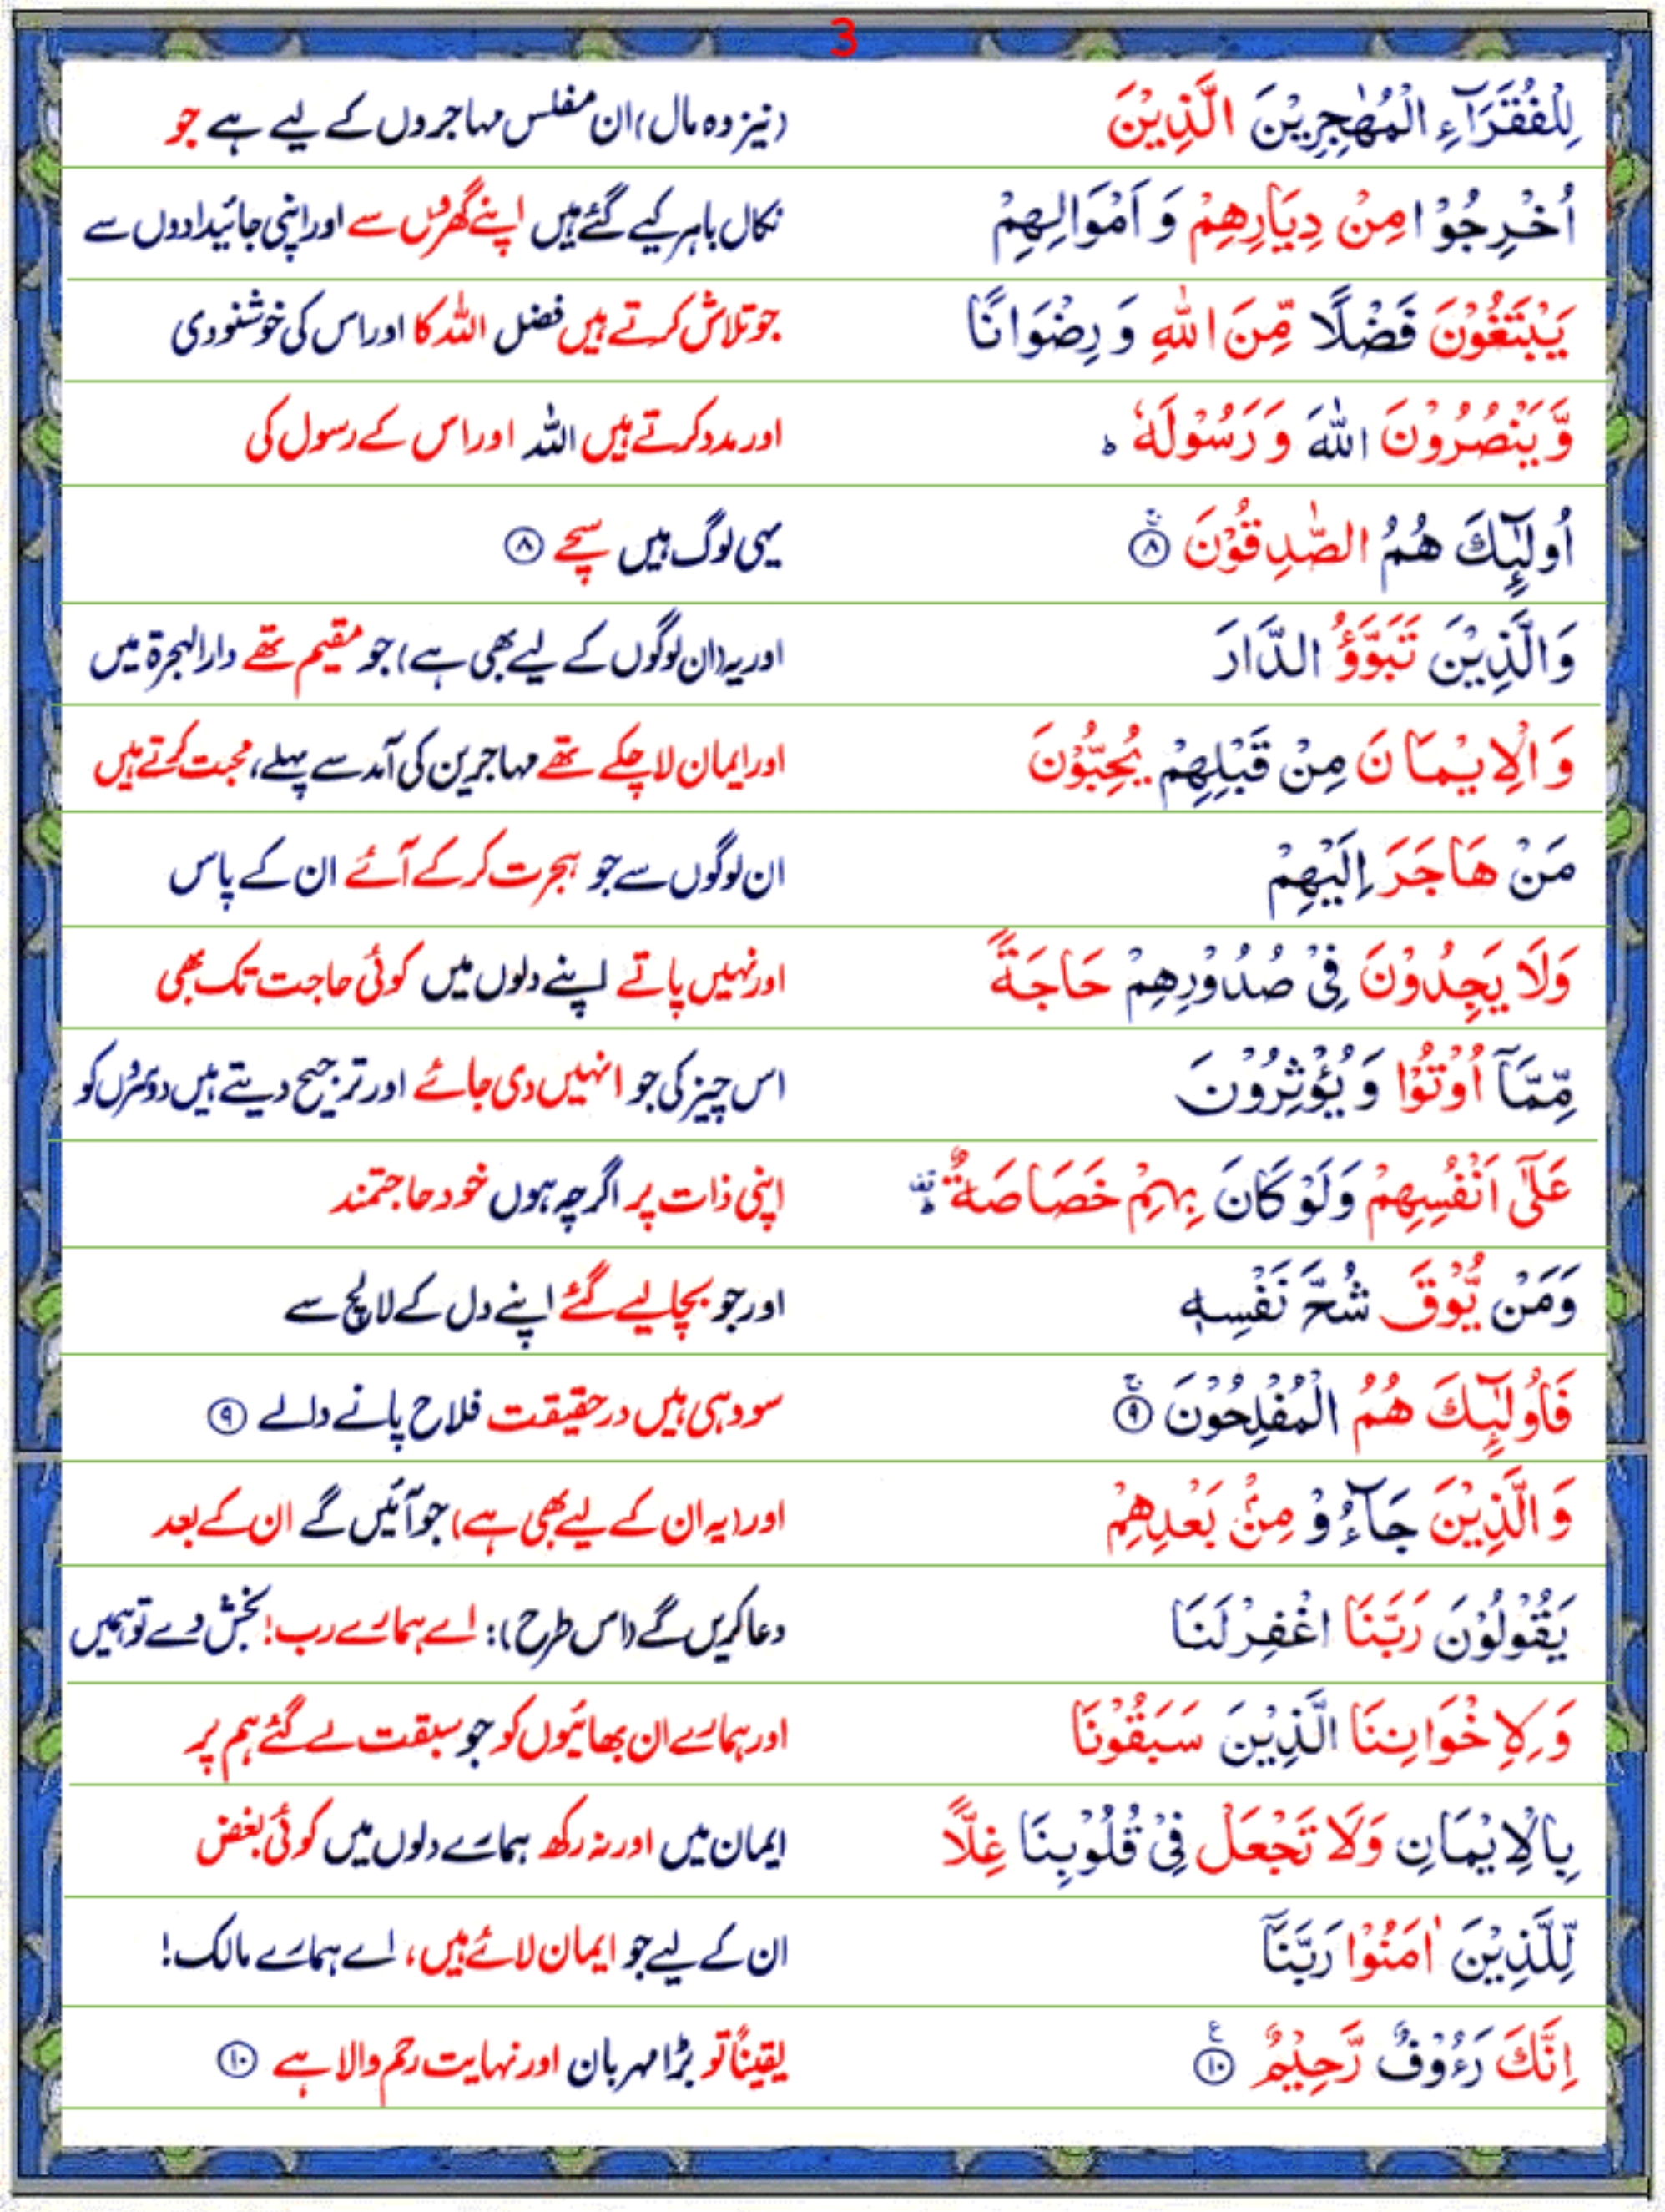 3
لِلْفُقَرَآءِ الْمُهٰجِرِيْنَ الَّذِيْنَ (نیز وہ مال) ان مفلس مہاجروں کے لیے ہے جو
اُخْرِجُوْا مِنْ دِيَارِهِمْ وَ اَمْوَالِهِمْ نکال باہر کیے گئے ہیں اپنے گھروں سے اور اپنی جائیدادوں سے
يَبْتَغُوْنَ فَضْلًا مِّنَ اللّٰهِ وَ رِضْوَانًا جو تلاش کرتے ہیں فضل اللہ کا اور اس کی خوشنودی
وَّ يَنْصُرُوْنَ اللّٰهَ وَ رَسُوْلَهٗ ؕ اور مدد کرتے ہیں اللہ اور اس کے رسول کی
اُولٰٓئِكَ هُمُ الصّٰدِقُوْنَ ۚ ﴿۸﴾ یہی لوگ ہیں سچے ﴿۸﴾
وَالَّذِيْنَ تَبَوَّؤُ الدَّارَ اور یہ (ان لوگوں کے لیے بھی ہے) جو مقیم تھے دارالہجرۃ میں
وَ الْاِيْمَانَ مِنْ قَبْلِهِمْ يُحِبُّوْنَ اور ایمان لا چکے تھے مہاجرین کی آمد سے پہلے، محبت کرتے ہیں
مَنْ هَاجَرَ اِلَيْهِمْ ان لوگوں سے جو ہجرت کر کے آئے ان کے پاس
وَلَا يَجِدُوْنَ فِيْ صُدُوْرِهِمْ حَاجَةً اور نہیں پاتے اپنے دلوں میں کوئی حاجت تک بھی
مِّمَّآ اُوْتُوْا وَ يُؤْثِرُوْنَ اس چیز کی جو انہیں دی جائے اور ترجیح دیتے ہیں دوسروں کو
عَلٰٓى اَنْفُسِهِمْ وَلَوْ كَانَ بِهِمْ خَصَاصَةٌ ؕ اپنی ذات پر اگرچہ ہوں خود حاجتمند
وَمَنْ يُّوْقَ شُحَّ نَفْسِهٖ اور جو بچا لیے گئے اپنے دل کے لالچ سے
فَاُولٰٓئِكَ هُمُ الْمُفْلِحُوْنَ ۚ ﴿۹﴾ سو وہی ہیں درحقیقت فلاح پانے والے ﴿۹﴾
وَ الَّذِيْنَ جَآءُوْ مِنْۢ بَعْدِهِمْ اور (یہ ان کے لیے بھی ہے) جو آئیں گے ان کے بعد
يَقُوْلُوْنَ رَبَّنَا اغْفِرْ لَنَا دعا کریں گے (اس طرح): اے ہمارے رب! بخش دے تو ہمیں
وَ لِاِخْوَانِنَا الَّذِيْنَ سَبَقُوْنَا اور ہمارے ان بھائیوں کو جو سبقت لے گئے ہم پر
بِالْاِيْمَانِ وَلَا تَجْعَلْ فِيْ قُلُوْبِنَا غِلًّا ایمان میں اور نہ رکھ ہمارے دلوں میں کوئی بغض
لِّلَّذِيْنَ اٰمَنُوْا رَبَّنَآ ان کے لیے جو ایمان لائے ہیں، اے ہمارے مالک!
اِنَّكَ رَءُوْفٌ رَّحِيْمٌ ﴿۱۰﴾ ع یقیناً تو بڑا مہربان اور نہایت رحم والا ہے ﴿۱۰﴾